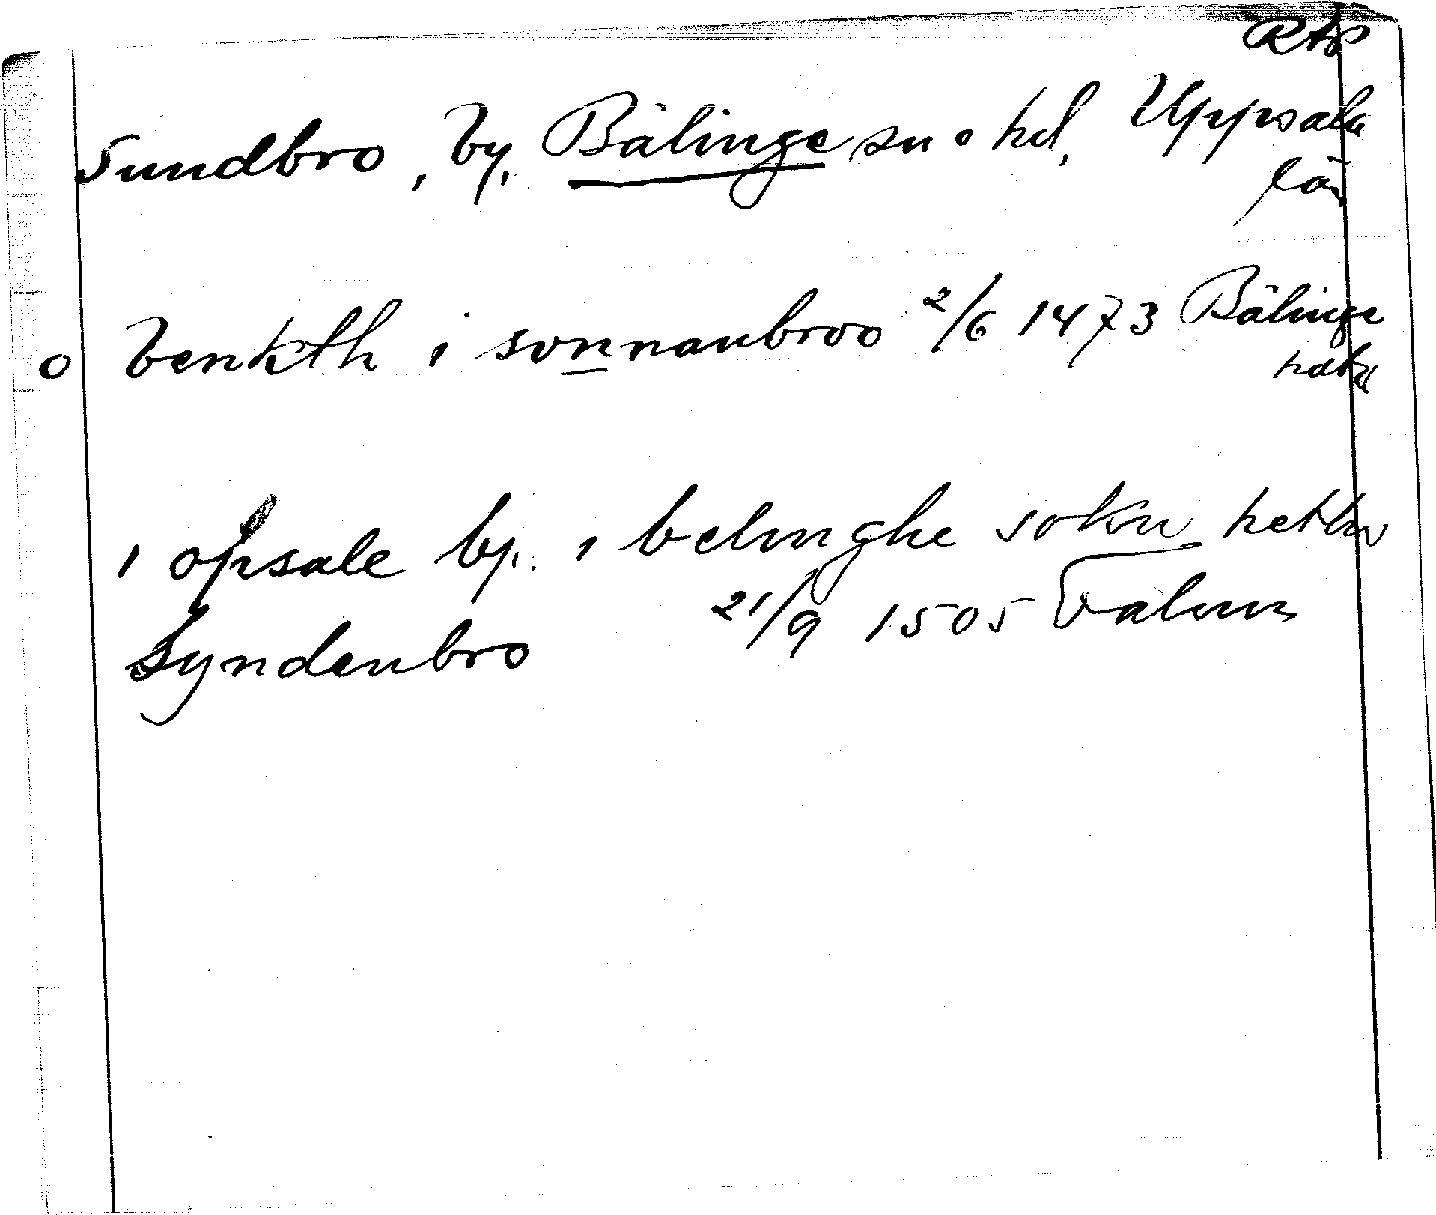 Sundbro, by, Bälinge sn o hd, Uppsala
län
o benkth i sonnanbroo 2/6 1473 Bälinge
i opsale by. i belinghe sokn
Syndenbro 21/9 1505 Falun